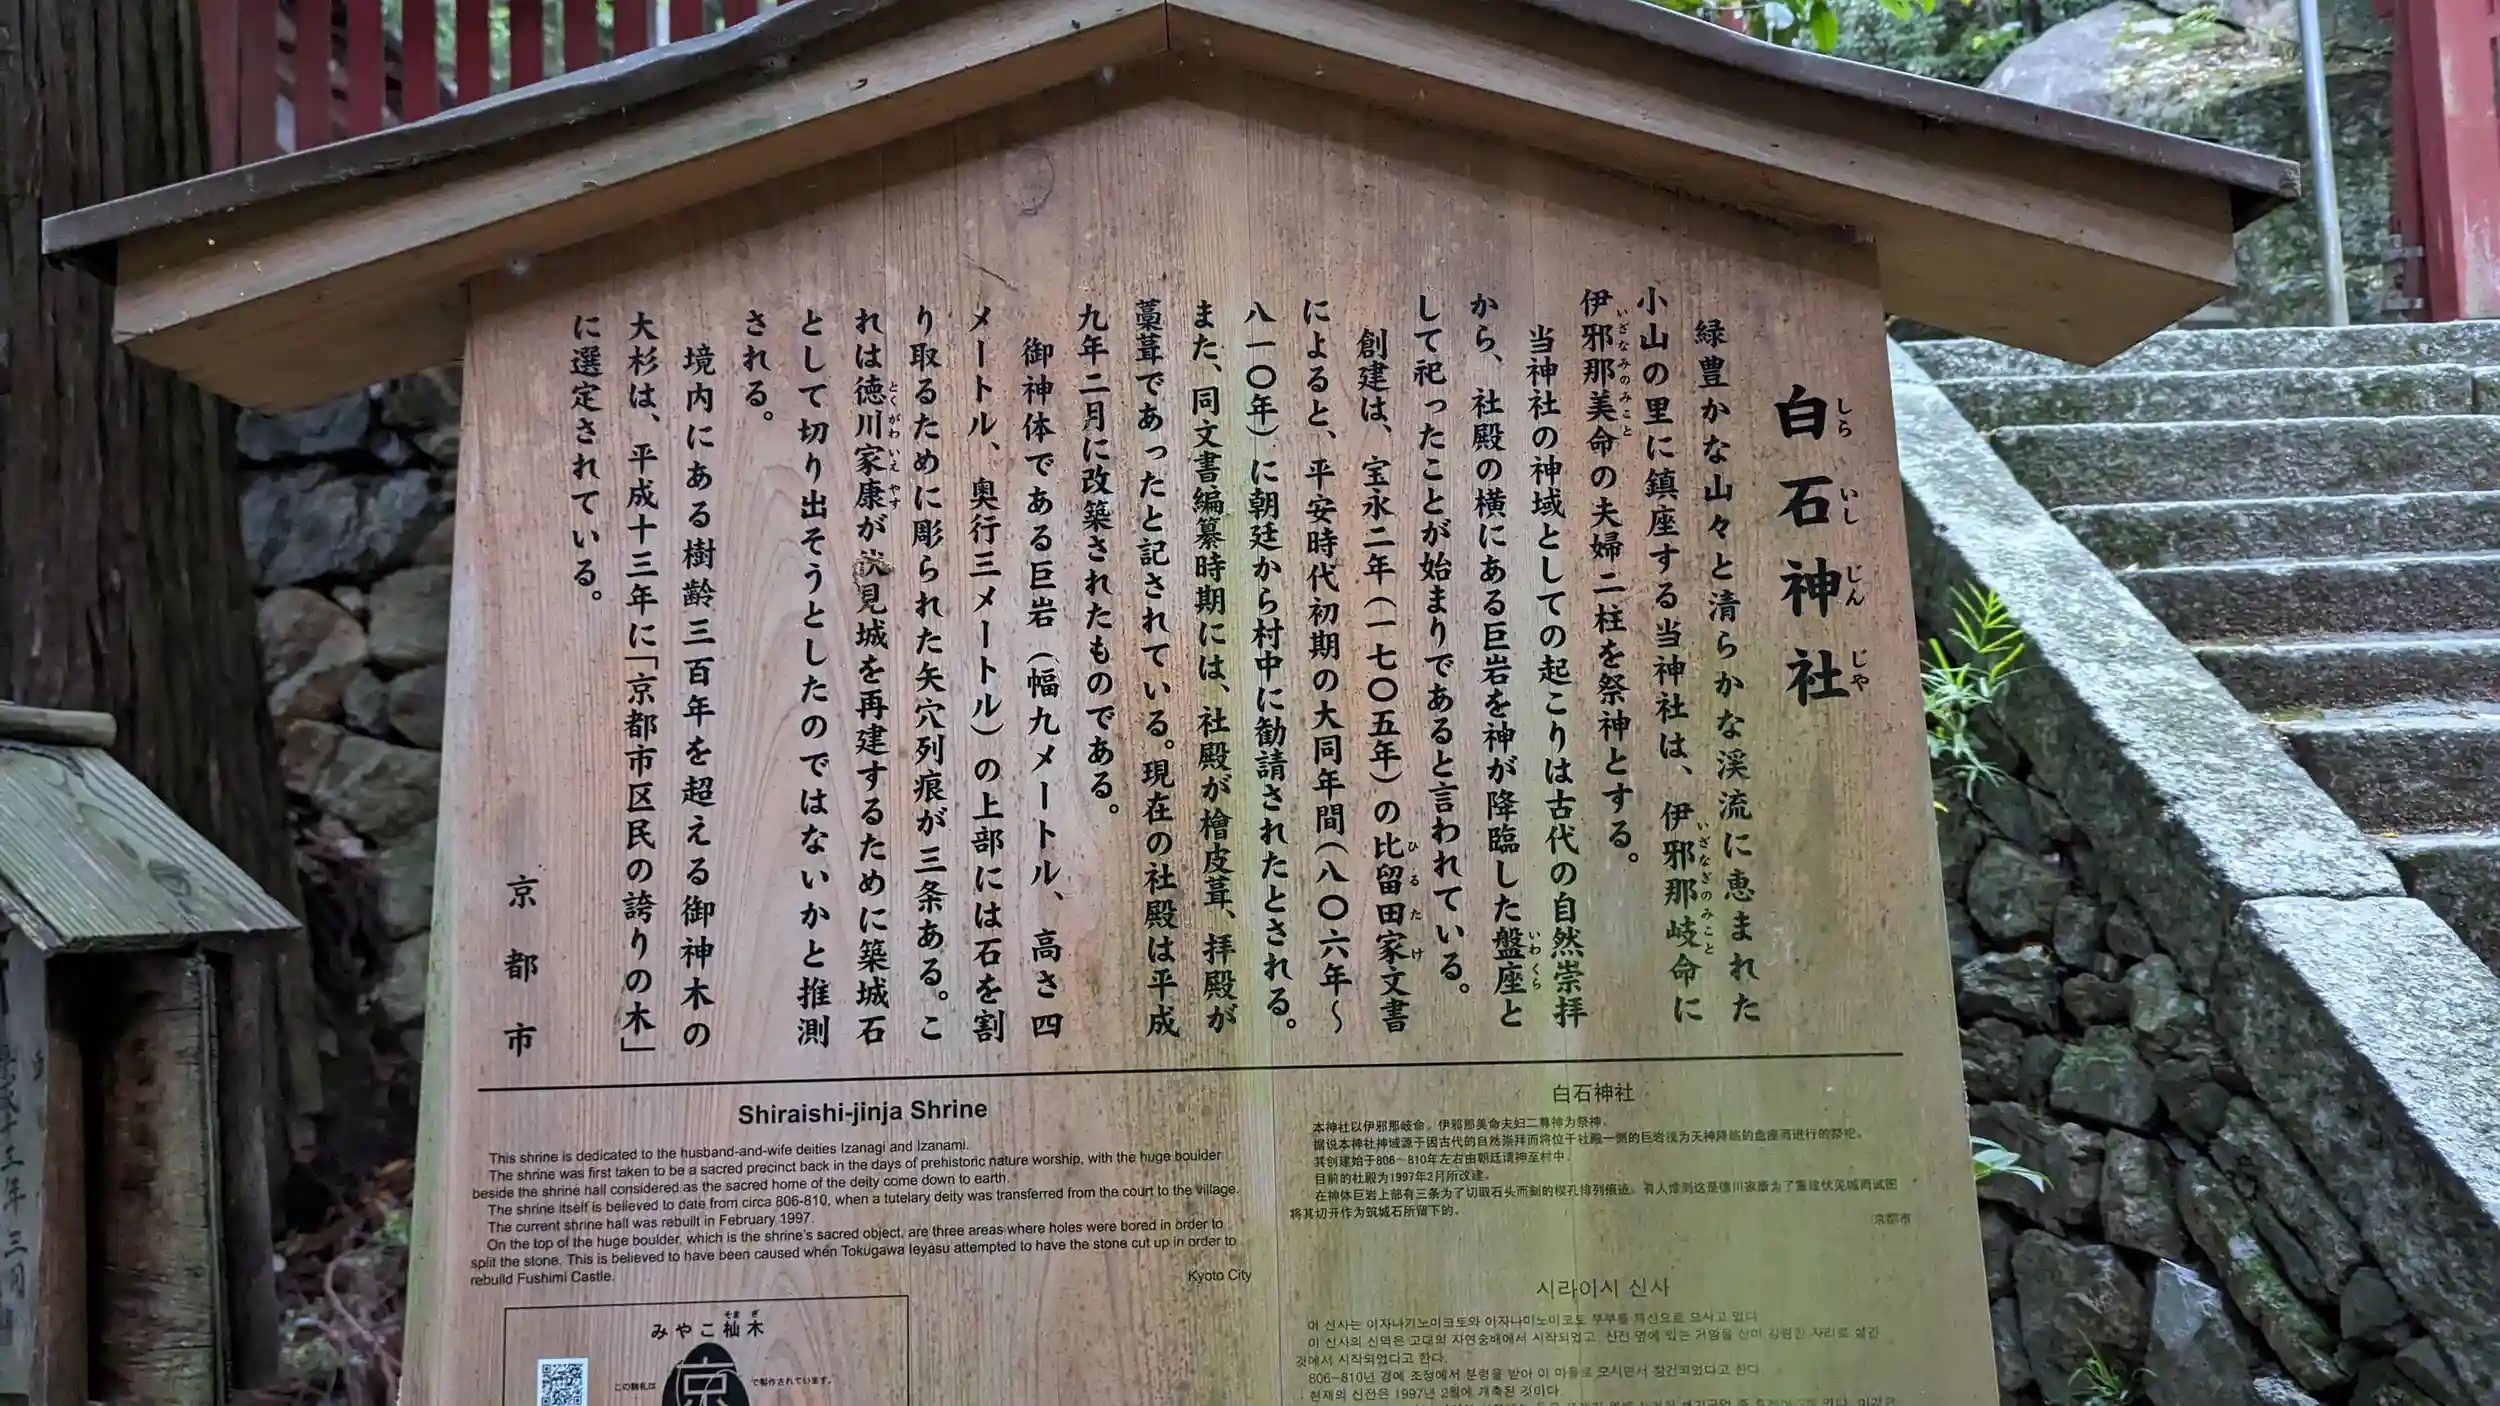 白石神社
しらいしじんじゃ
緑豊かな山々と清らかな渓流に恵まれた
小山の里に鎮座する当神社は、伊邪那岐命に
いざなぎのみこと
伊邪那美命の夫婦二柱を祭神とする。
いざなみのみこと
当神社の神域としての起こりは古代の自然崇拝
から、社殿の横にある巨岩を神が降臨した盤座と
いわくら
して祀ったことが始まりであると言われている。
創建は、宝永二年(一七〇五年)の比留田家文書
ひるたけ
によると、平安時代初期の大同年間(八〇六年~
八一〇年)に朝廷から村中に勧請されたとされる。
また、同文書編纂時期には、社殿が檜皮葺、拝殿が
藁葺であったと記されている。現在の社殿は平成
九年二月に改築されたものである。
御神体である巨岩(幅九メートル、高さ四
メートル、奥行三メートル)の上部には石を割
り取るために彫られた矢穴列痕が三条ある。こ
れは徳川家康が伏見城を再建するために築城石
とくがわいえやす
として切り出そうとしたのではないかと推測
される。
境内にある樹齢三百年を超える御神木の
大杉は、平成十三年に「京都市区民の誇りの木」
に選定されている。
京都市
Shiraishi-jinja Shrine
This shrine is dedicated to the husband-and-wife deities Izanagi and Izanami.
The shrine was first taken to be a sacred precinct back in the days of prehistoric nature worship, with the huge boulder
beside the shrine hall considered as the sacred home of the deity come down to earth.
The shrine itself is believed to date from circa 806-810, when a tutelary deity was transferred from the court to the village.
The current shrine hall was rebuilt in February 1997.
On the top of the huge boulder, which is the shrine's sacred object, are three areas where holes were bored in order to
split the stone. This is believed to have been caused when Tokugawa Ieyasu attempted to have the stone cut up in order to
rebuild Fushimi Castle.
Kyoto City
白石神社
本神社以伊邪那岐命、伊邪那美命夫妇二尊神为祭神。
据说本神社神域源于因古代的自然崇拜而将位于社殿一侧的巨岩视为天神降临的盘座而进行的祭祀。
其创建始于806~810年左右由朝廷请神至村中。
目前的社殿为1997年2月所改建。
在神体巨岩上部有三条为了切取石头而刻的楔孔排列痕迹。有人推测这是德川家康为了重建伏见城而试图
将其切开作为筑城石所留下的。
京都市
시라이시 신사
이 신사는 이자나기노미코토와 이자나미노미코토 부부를 제신으로 모시고 있다.
이 신사의 신역은 고대의 자연숭배에서 시작되었고, 신전 옆에 있는 거암을 신이 강림한 자리로 섬긴
것에서 시작되었다고 한다.
806~810년 경에 조정에서 분령을 받아 이 마을로 모시면서 창건되었다고 한다.
현재의 신전은 1997년 2월에 개축된 것이다.
そまぎ
みやこ杣木
この駒札は
京
で製作されています。